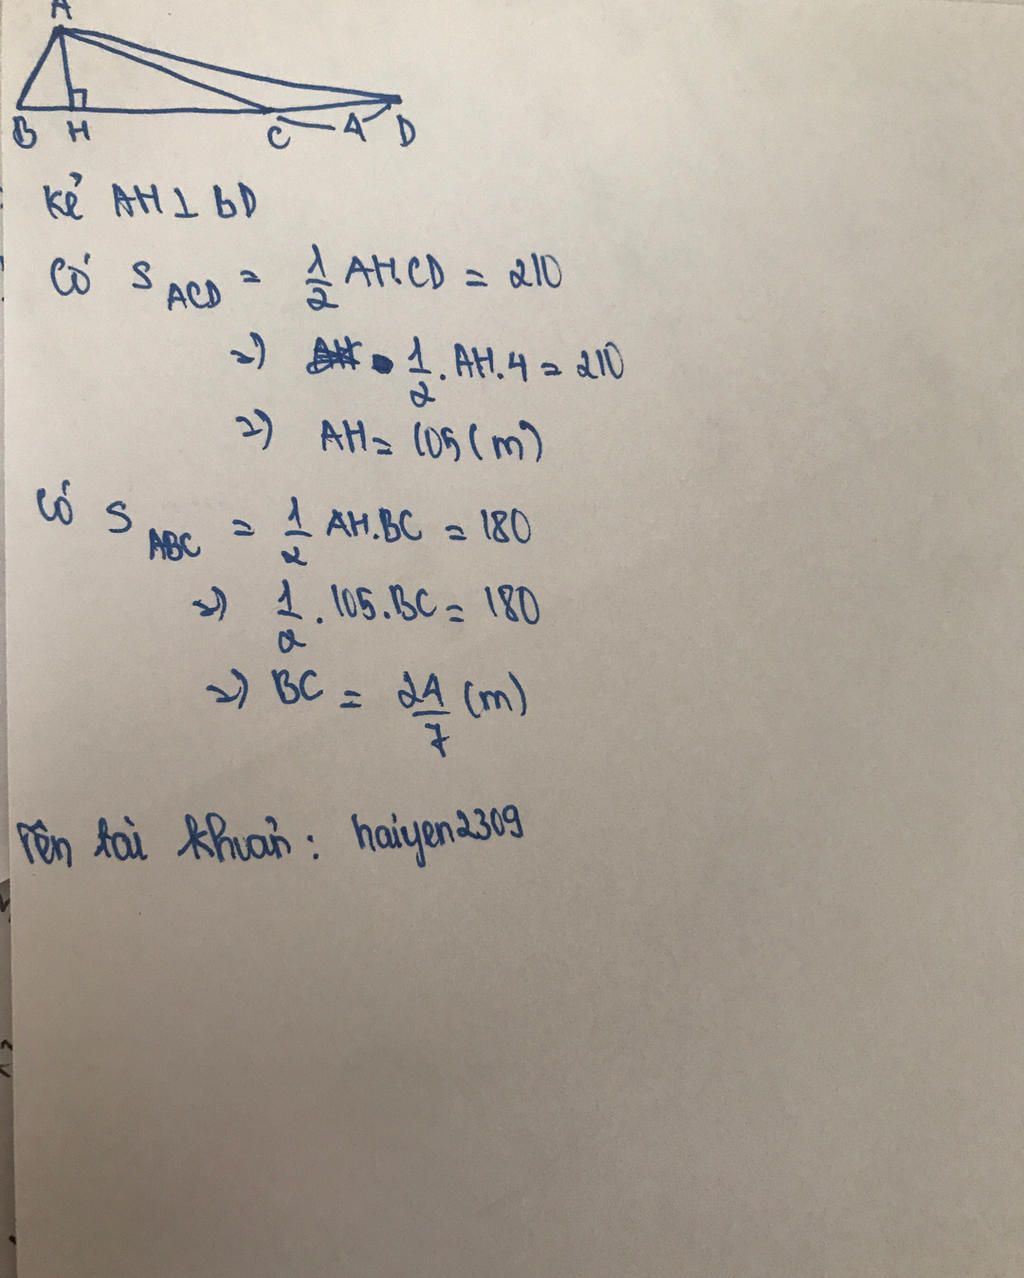 A
B H C 4 D
Kẻ AH ⊥ BD
Có S ACD = 1/2 AH.CD = 210
=> 1/2 . AH.4 = 210
=> AH = 105 (m)
Có S ABC = 1/2 AH.BC = 180
=> 1/2 . 105.BC = 180
=> BC = 24/7 (m)
Tên tài khuản : haiyen2309